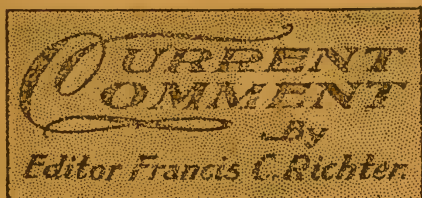 CURRENT
COMMENT
By
Editor Francis C. Richter.